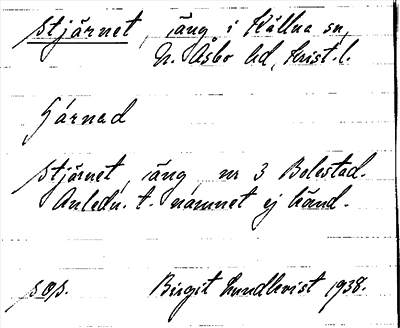 Stjärnet, äng i Källna sn,
N. Åsbo hd, Krist. l.
Stjärnet, äng, nr 3 Bolestad.
Anledn. t. namnet ej känd.
sop. Birgit Lundkvist 1938.